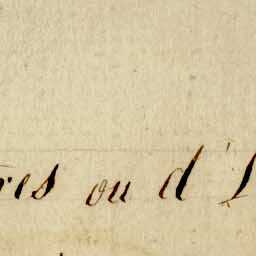 res ou d'